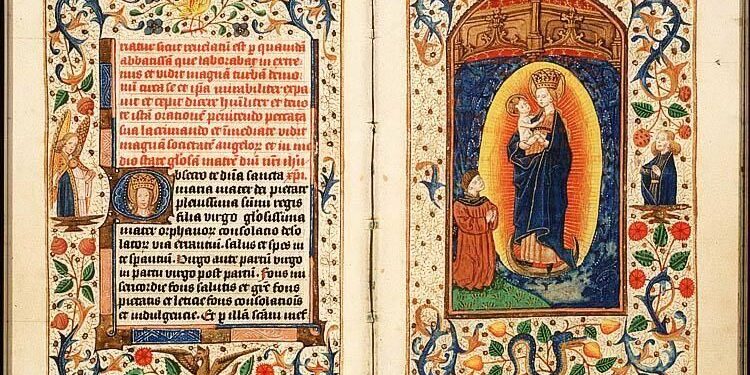 tratur sicut revelatū est p quandā
abbatissā que laborabat in extre
mis et vidit magnam turbā demo
num circa se et ipsa mirabiliter expa
vit et cepit dicere hūiliter et devo
te istā orationem penitendo peccata
sua lacrimando et īmediate vidit
magnā societatē angelorū et in me
dio stare gl'osā matrē dnī nrī ihū
xpī.
Obsecro te dn̄a sancta
maria mater dei pietate
plenissima sūmi regis
filia virgo gl'osissima
mater orphanorū consolatio deso
latorū via errantiū salus et spes in
te sperantiū Virgo ante partū virgo
in partu virgo post partū. Fons mi
sericordie fons salutis et grē fons
pietatis et leticie fons consolatiōis
et indulgencie. Et p illā